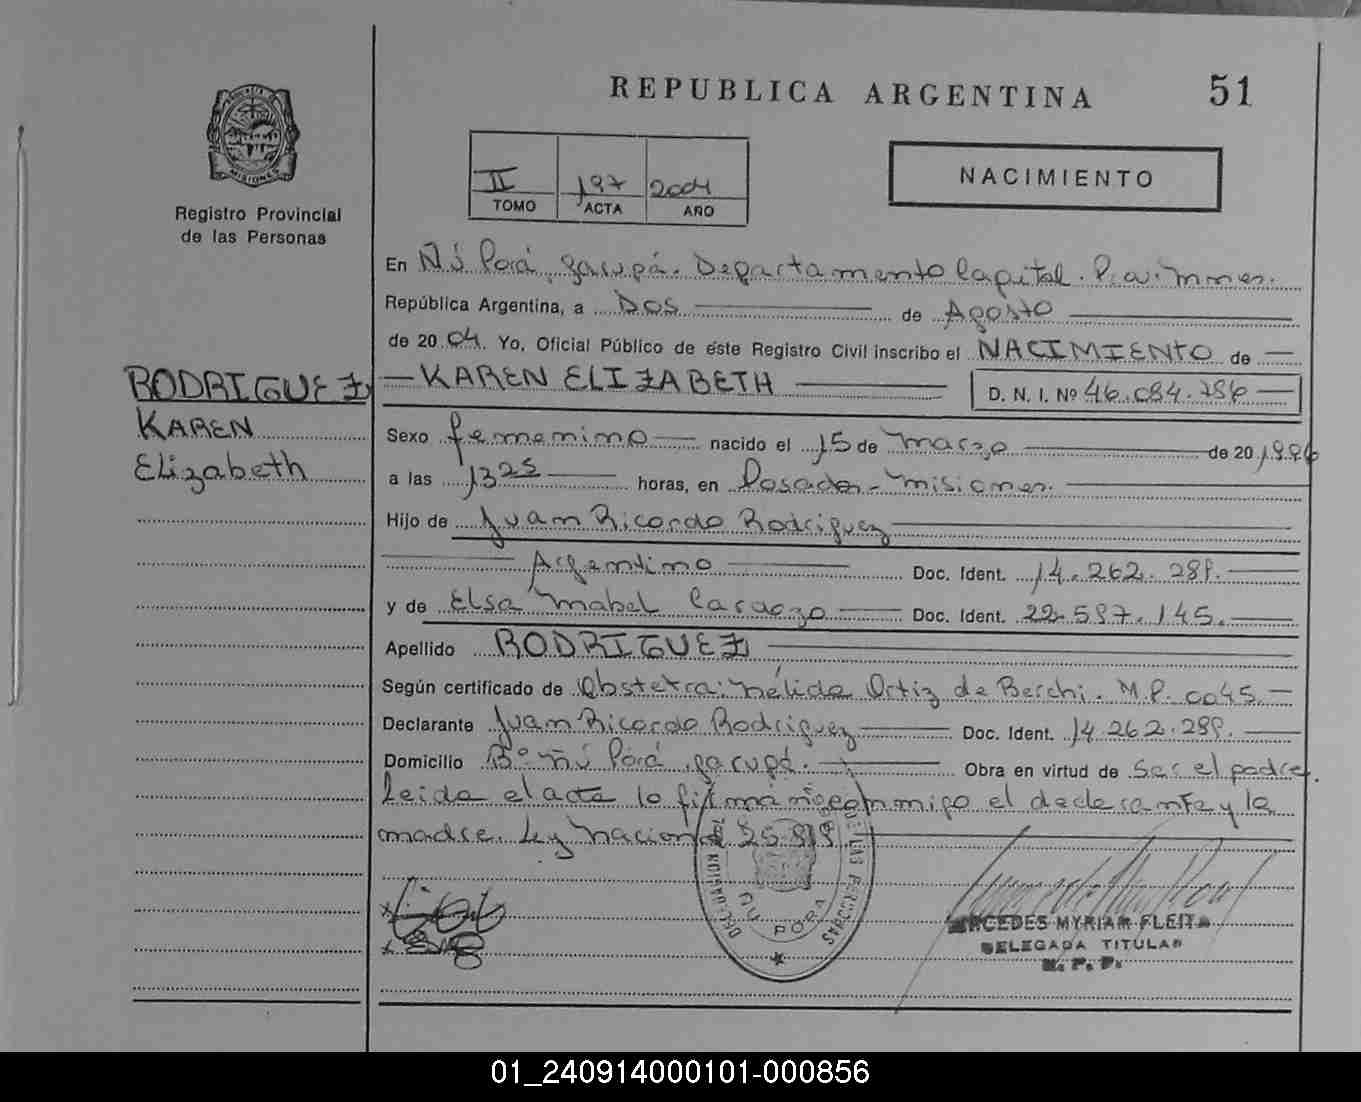 REPUBLICA ARGENTINA 51
MISIONES
Registro Provincial
de las Personas
II 197 2004
TOMO ACTA AÑO
NACIMIENTO
En Ñú Porá, Garupá. Departamento Capital. P.cia. Mnes.
República Argentina, a Dos de Agosto
de 2004. Yo, Oficial Público de este Registro Civil inscribo el NACIMIENTO de
RODRIGUEZ
KAREN
Elizabeth
KAREN ELIZABETH D. N. I. Nº 46.084.786
Sexo femenino nacido el 15 de Marzo de 20 1996
a las 13 25 horas, en Posadas - Misiones.
Hijo de Juan Ricardo Rodriguez
Argentino Doc. Ident. 14.262.289.
y de Elsa Mabel Cardozo Doc. Ident. 22.597.145.
Apellido RODRIGUEZ
Según certificado de Obstetra: Nélida Ortiz de Berchi. M.P. 0045
Declarante Juan Ricardo Rodriguez Doc. Ident. 14.262.289.
Domicilio Bº Ñú Porá, Garupá. Obra en virtud de Ser el padre.
Leida el acta la firmán conmigo el declarante y la
madre. Ley Nacional 25.819
DE LAS PERSONAS
ÑU PORA
MERCEDES MYRIAM FLEITA
DELEGADA TITULAR
R. P. P.
01_240914000101-000856